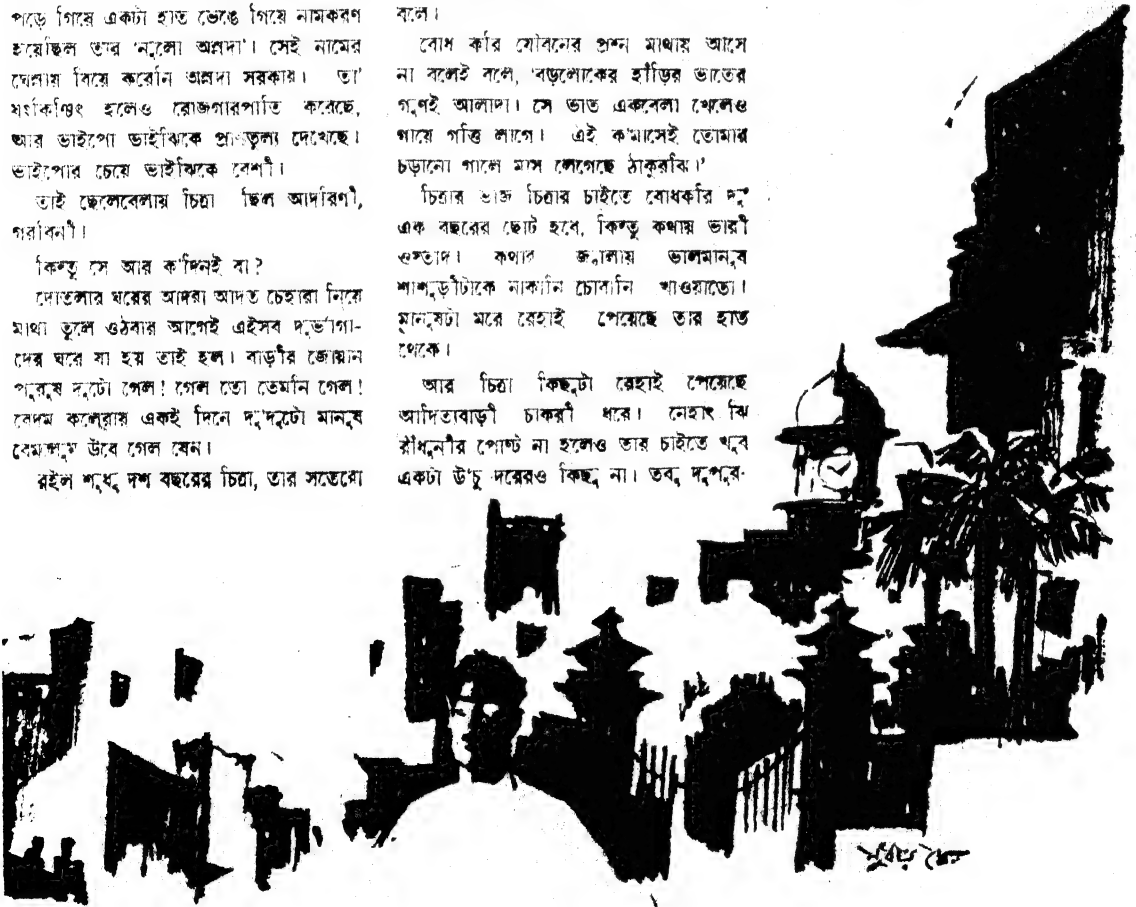 পড়ে গিয়ে একটা হাত ভেঙে গিয়ে নামকরণ
হয়েছিল তার 'নুলো অন্নদা'। সেই নামের
ঘেন্নায় বিয়ে করেনি অন্নদা সরকার। তা'
যৎকিঞ্চিৎ হলেও রোজগারপাতি করেছে,
আর ভাইপো ভাইঝিকে প্রাণতুল্য দেখেছে।
ভাইপোর চেয়ে ভাইঝিকে বেশী।
তাই ছেলেবেলায় চিত্রা ছিল আদরিণী,
গরবিনী।
কিন্তু সে আর ক'দিনই বা?
দোতলার ঘরের আদরা আদত চেহারা নিয়ে
মাথা তুলে ওঠবার আগেই এইসব দুর্ভাগা-
দের ঘরে যা হয় তাই হল। বাড়ীর জোয়ান
পুরুষ দুটো গেল! গেল তো তেমনি গেল!
বেদম কলেরায় একই দিনে দু'দুটো মানুষ
বেমালুম উবে গেল যেন।
রইল শুধু দশ বছরের চিত্রা, তার সতেরো
বলে।
বোধ করি যৌবনের প্রশ্ন মাথায় আসে
না বলেই বলে, 'বড়লোকের হাঁড়ির ভাতের
গুণই আলাদা। সে ভাত একবেলা খেলেও
গায়ে গত্তি লাগে। এই ক'মাসেই তোমার
চড়ানো গালে মাস লেগেছে ঠাকুরঝি।'
চিত্রার ভাজ চিত্রার চাইতে বোধকরি দু'
এক বছরের ছোট হবে, কিন্তু কথায় ভারী
ওস্তাদ। কথার জ্বালায় ভালমানুষ
শাশুড়ীটাকে নাকানি চোবানি খাওয়াতো।
মানুষটা মরে রেহাই পেয়েছে তার হাত
থেকে।
আর চিত্রা কিছুটা রেহাই পেয়েছে
আদিত্যবাড়ী চাকরী ধরে। নেহাৎ ঝি
রাঁধুনীর পোস্ট না হলেও তার চাইতে খুব
একটা উঁচু দরেরও কিছু না। তবু দুপুর-